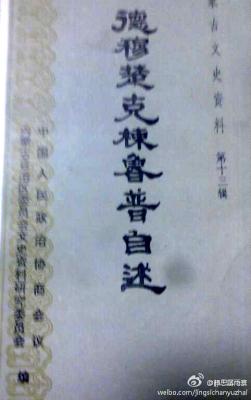 蒙古文史资料 第十三辑
德穆楚克栋鲁普自述
中国人民政治协商会议
内蒙古自治区委员会文史资料研究委员会 编
@静思斋雨寨
weibo.com/jingsichanyuzhai